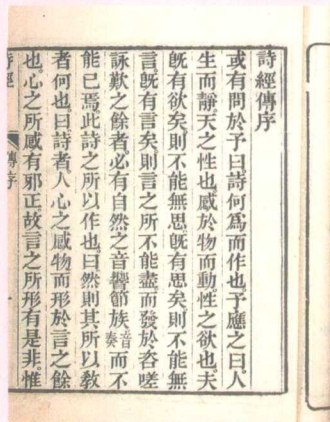 詩經傳序
或有問於予曰詩何爲而作也予應之曰人
生而靜天之性也感於物而動性之欲也夫
旣有欲矣則不能無思旣有思矣則不能無
言旣有言矣則言之所不能盡而發於咨嗟
詠歎之餘者必有自然之音響節族音奏而不
能已焉此詩之所以作也曰然則其所以敎
者何也曰詩者人心之感物而形於言之餘
也心之所感有邪正故言之所形有是非惟
詩經 傳序 一